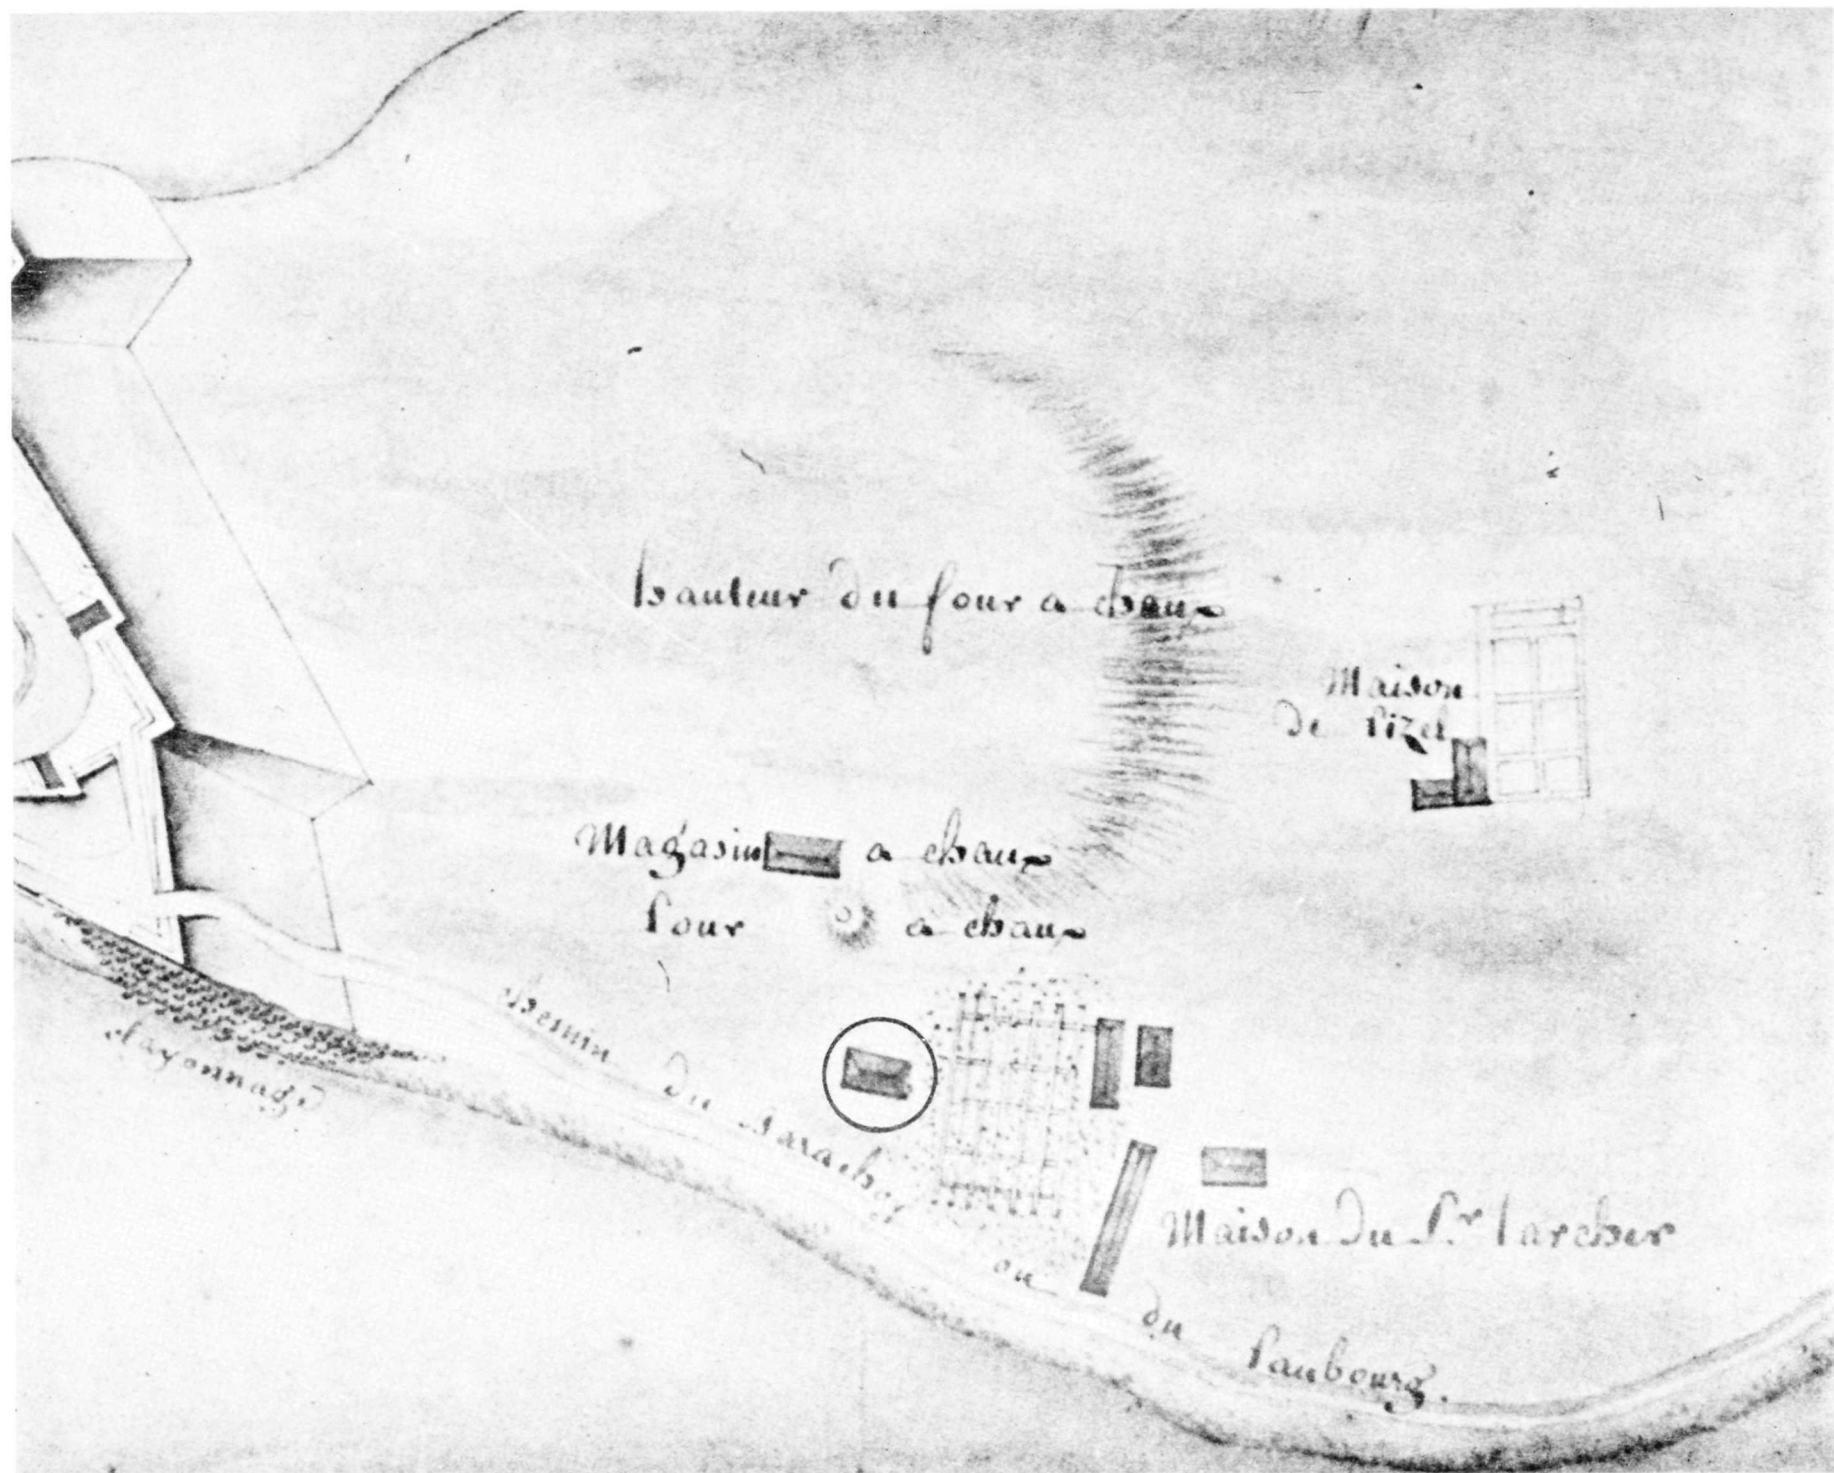 hauteur du four a chaux
Maison
de Pizet
Magasin a chaux
Four a chaux
Clayonnage
chemin du Barachoy ou du Faubourg.
Maison du Sr. Larcher